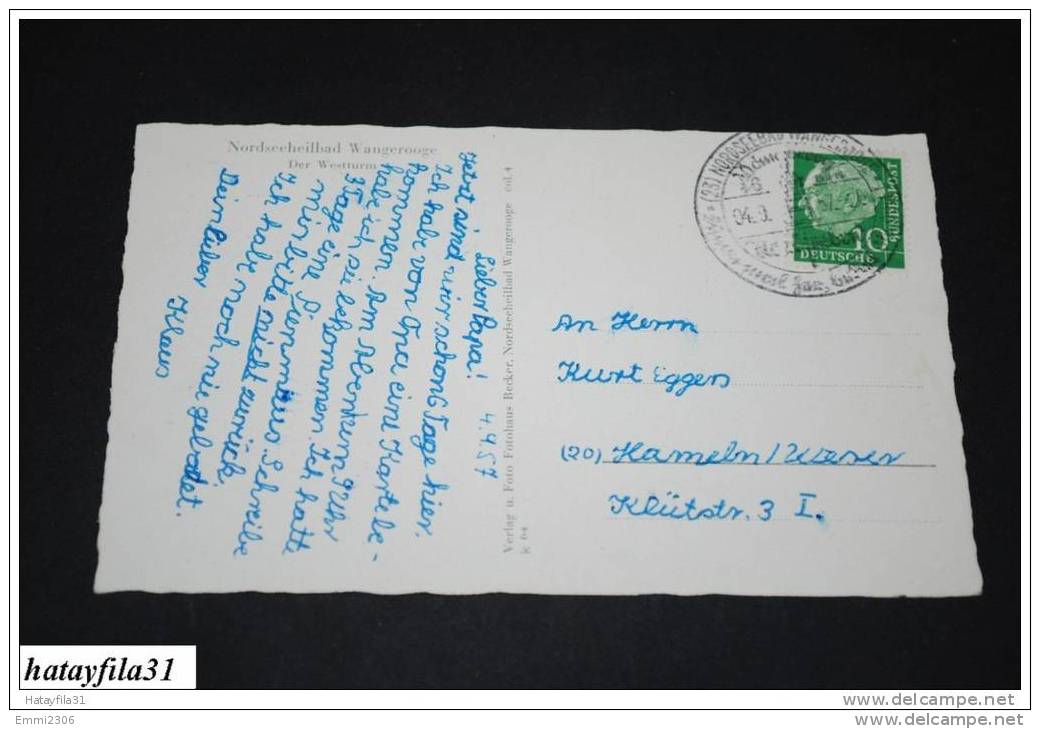 Nordseeheilbad Wangerooge
Der Westturm
4.9.57
Lieber Papa!
Jetzt sind wir schon 6 Tage hier.
Ich habe von Oma eine Karte be-
kommen. Am Abend um 9 Uhr
habe ich sie bekommen. Ich hatte
3 Tage eine
mir bitte nicht zurück.
Ich habe noch nie gebadet.
Dein lieber Klaus
Verlag u. Foto Fotohaus Becker, Nordseeheilbad Wangerooge col.4
K 64
(23) NORDSEEBAD
04.9.
10
DEUTSCHE
BUNDESPOST
An Herrn
Kurt Eggers
(20) Hameln/Weser
Klütstr. 3 I.
hatayfila31
Hatayfila31
www.delcampe.net
Emmi2306
www.delcampe.net